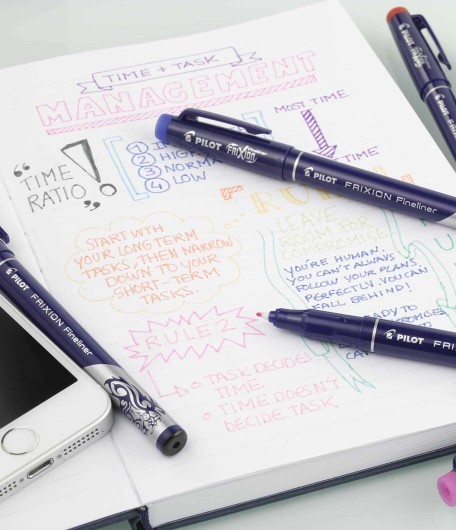 TIME + TASK
MANAGEMENT
MOST TIME
"TIME
RATIO"
!
1
2 HIGH
3 NORMA
4 LOW
TIME
PILOT FRIXION
PILOT FRIXION Fineliner
START WTH
YOUR LONG TERM
TASKS, THEN NARROW
DOWN TO YOUR
SHORT-TERM
TASKS.
LEAVE
ROOM FOR
COMPROMISE
YOU'RE HUMAN.
YOU CAN'T ALWAYS
FOLLOW YOUR PLANS
PERFECTLY. YOU CAN
FALL BEHIND!
RULE 2
TASK DECIDES
TIME.
TIME DOESN'T
DECIDE TASK
PILOT FRIXION Fineliner
PILOT FRI
PILOT
PILOT